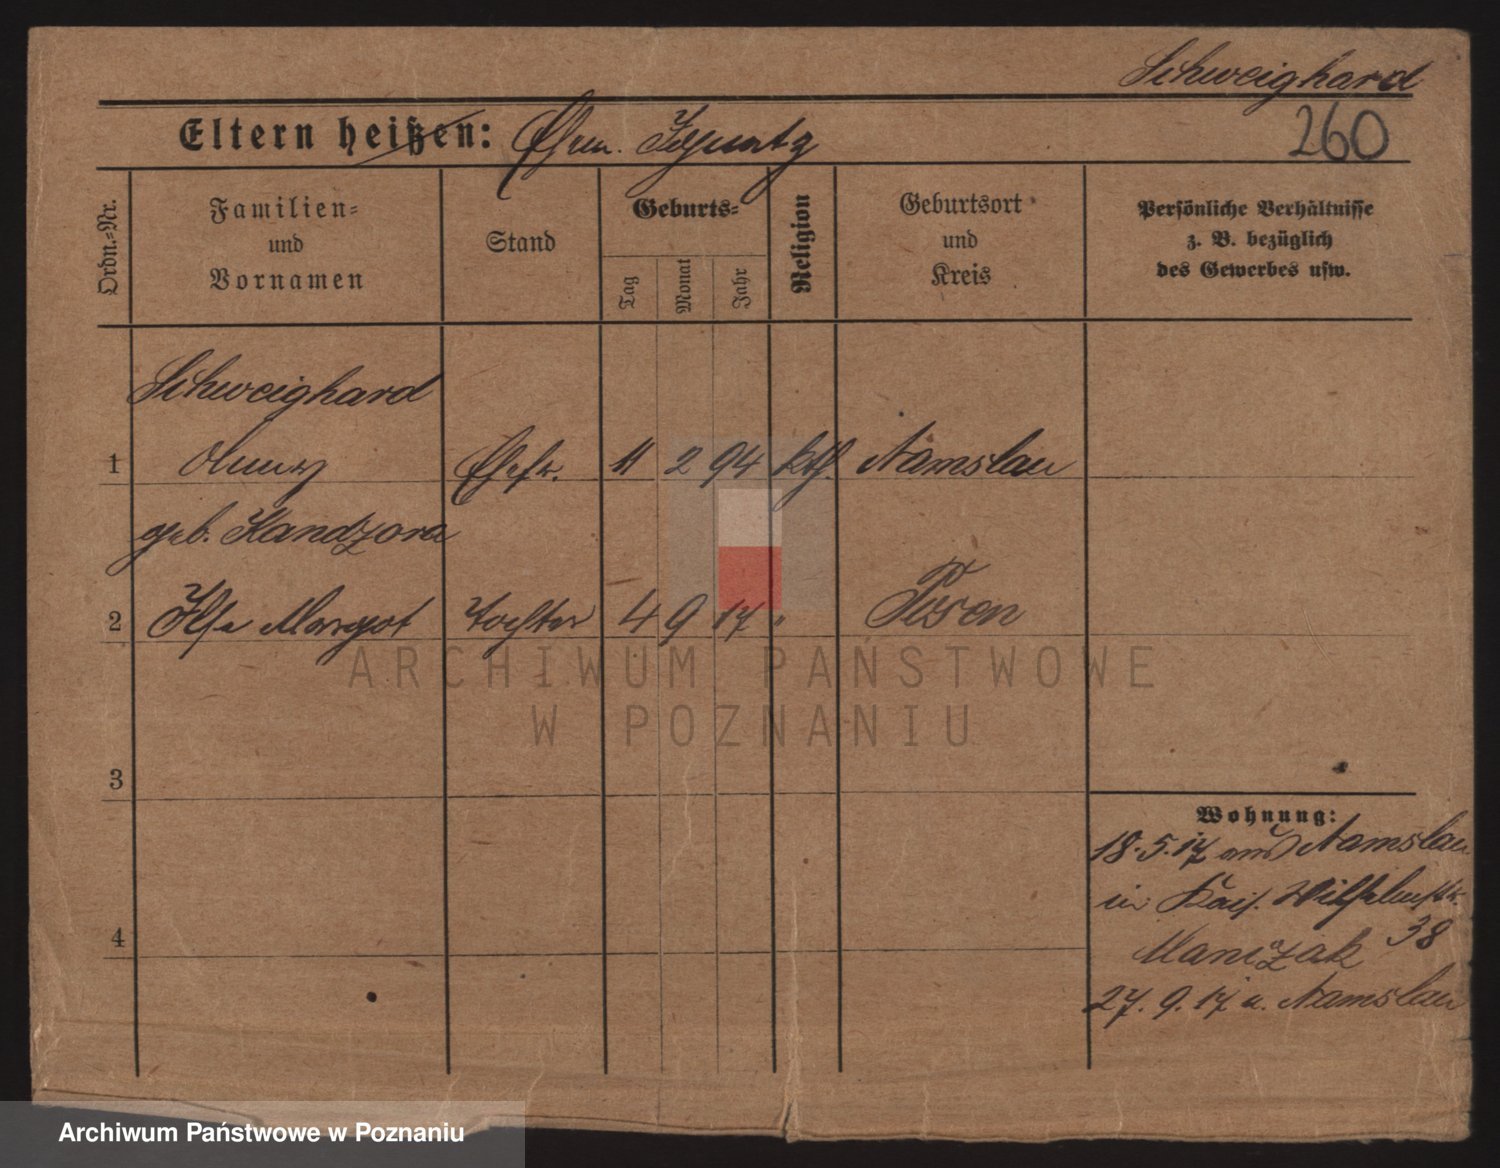 Schweighard
Eltern heißen: Ehem. Ignatz
260
Ordn.-Nr.
Familien-
und
Vornamen
Stand
Geburts-
Tag
Monat
Jahr
Religion
Geburtsort
und
Kreis
Persönliche Verhältnisse
z. B. bezüglich
des Gewerbes usw.
Schweighard
1 Ehefr. 11 2 94 kth. Namslau
geb. Kandzora
2 Ilse Margot Tochter 4 9 17 " Posen
3
4
Wohnung:
18.5.17 aus Namslau
in Kais. Wilhelmstr.
38
27.9.17 n. Namslau
ARCHIWUM PAŃSTWOWE
W POZNANIU
Archiwum Państwowe w Poznaniu